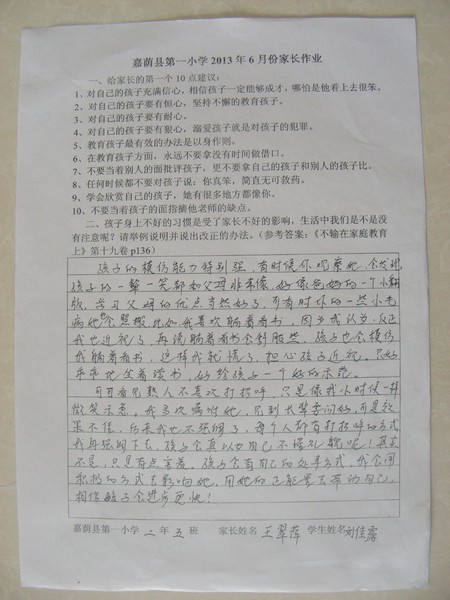 嘉荫县第一小学 2013 年 6 月份家长作业
一、给家长的第一个 10 点建议:
1、对自己的孩子充满信心,相信孩子一定能够成才,哪怕是他看上去很笨。
2、对自己的孩子要有恒心,坚持不懈的教育孩子。
3、对自己的孩子要有耐心。
4、对自己的孩子要有狠心,溺爱孩子就是对孩子的犯罪。
5、教育孩子最有效的办法是以身作则。
6、在教育孩子方面,永远不要拿没有时间做借口。
7、不要当着别人的面批评孩子,更不要拿自己的孩子和别人的孩子比。
8、任何时候都不要对孩子说:你真笨,简直无可救药。
9、学会欣赏自己的孩子,她有很多地方都像你。
10、不要当着孩子的面指摘他老师的缺点。
二、孩子身上不好的习惯是受了家长不好的影响,生活中我们是不是没
有注意呢?请举例说明并说出改正的办法。(参考答案:《不输在家庭教育
上》第十九卷 p136)
孩子的模仿能力特别强,有时候你观察她,会发现
孩子的一颦一笑都和父母非常像,好像爸妈的一个小翻
版,学习父母的优点自然好了,可有时你的一些小毛
病她也会照搬,比如我喜欢躺着看书,因为我认为,反正
我也近视了,再说躺着看书会舒服些,孩子也会模仿
我躺着看书,这样我就慌了,担心孩子近视,只好
乖乖地坐着读书,好给孩子一个好的示范。
可可看见熟人不喜欢打招呼,只是像我小时候一样
微笑示意。我多次嘱咐她,见到长辈要问好,可是效
果不佳,后来我也不强调了,每个人都有打招呼的方式
我再强调下去,孩子会真以为自己不懂礼貌呢!其实
不是,只是有点害羞。孩子会有自己的处事方式,我会用
积极的方式去影响她,用她的正能量去带动自己,
相信孩子会进步更快!
嘉荫县第一小学 二 年 五 班 家长姓名 王翠萍 学生姓名 刘佳露